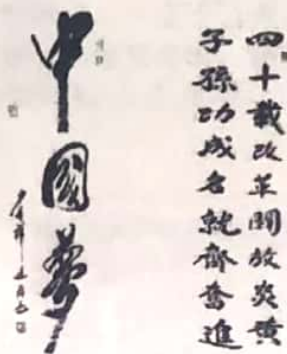 四十載改革開放炎黃
子孫功成名就齊奮進
中國夢